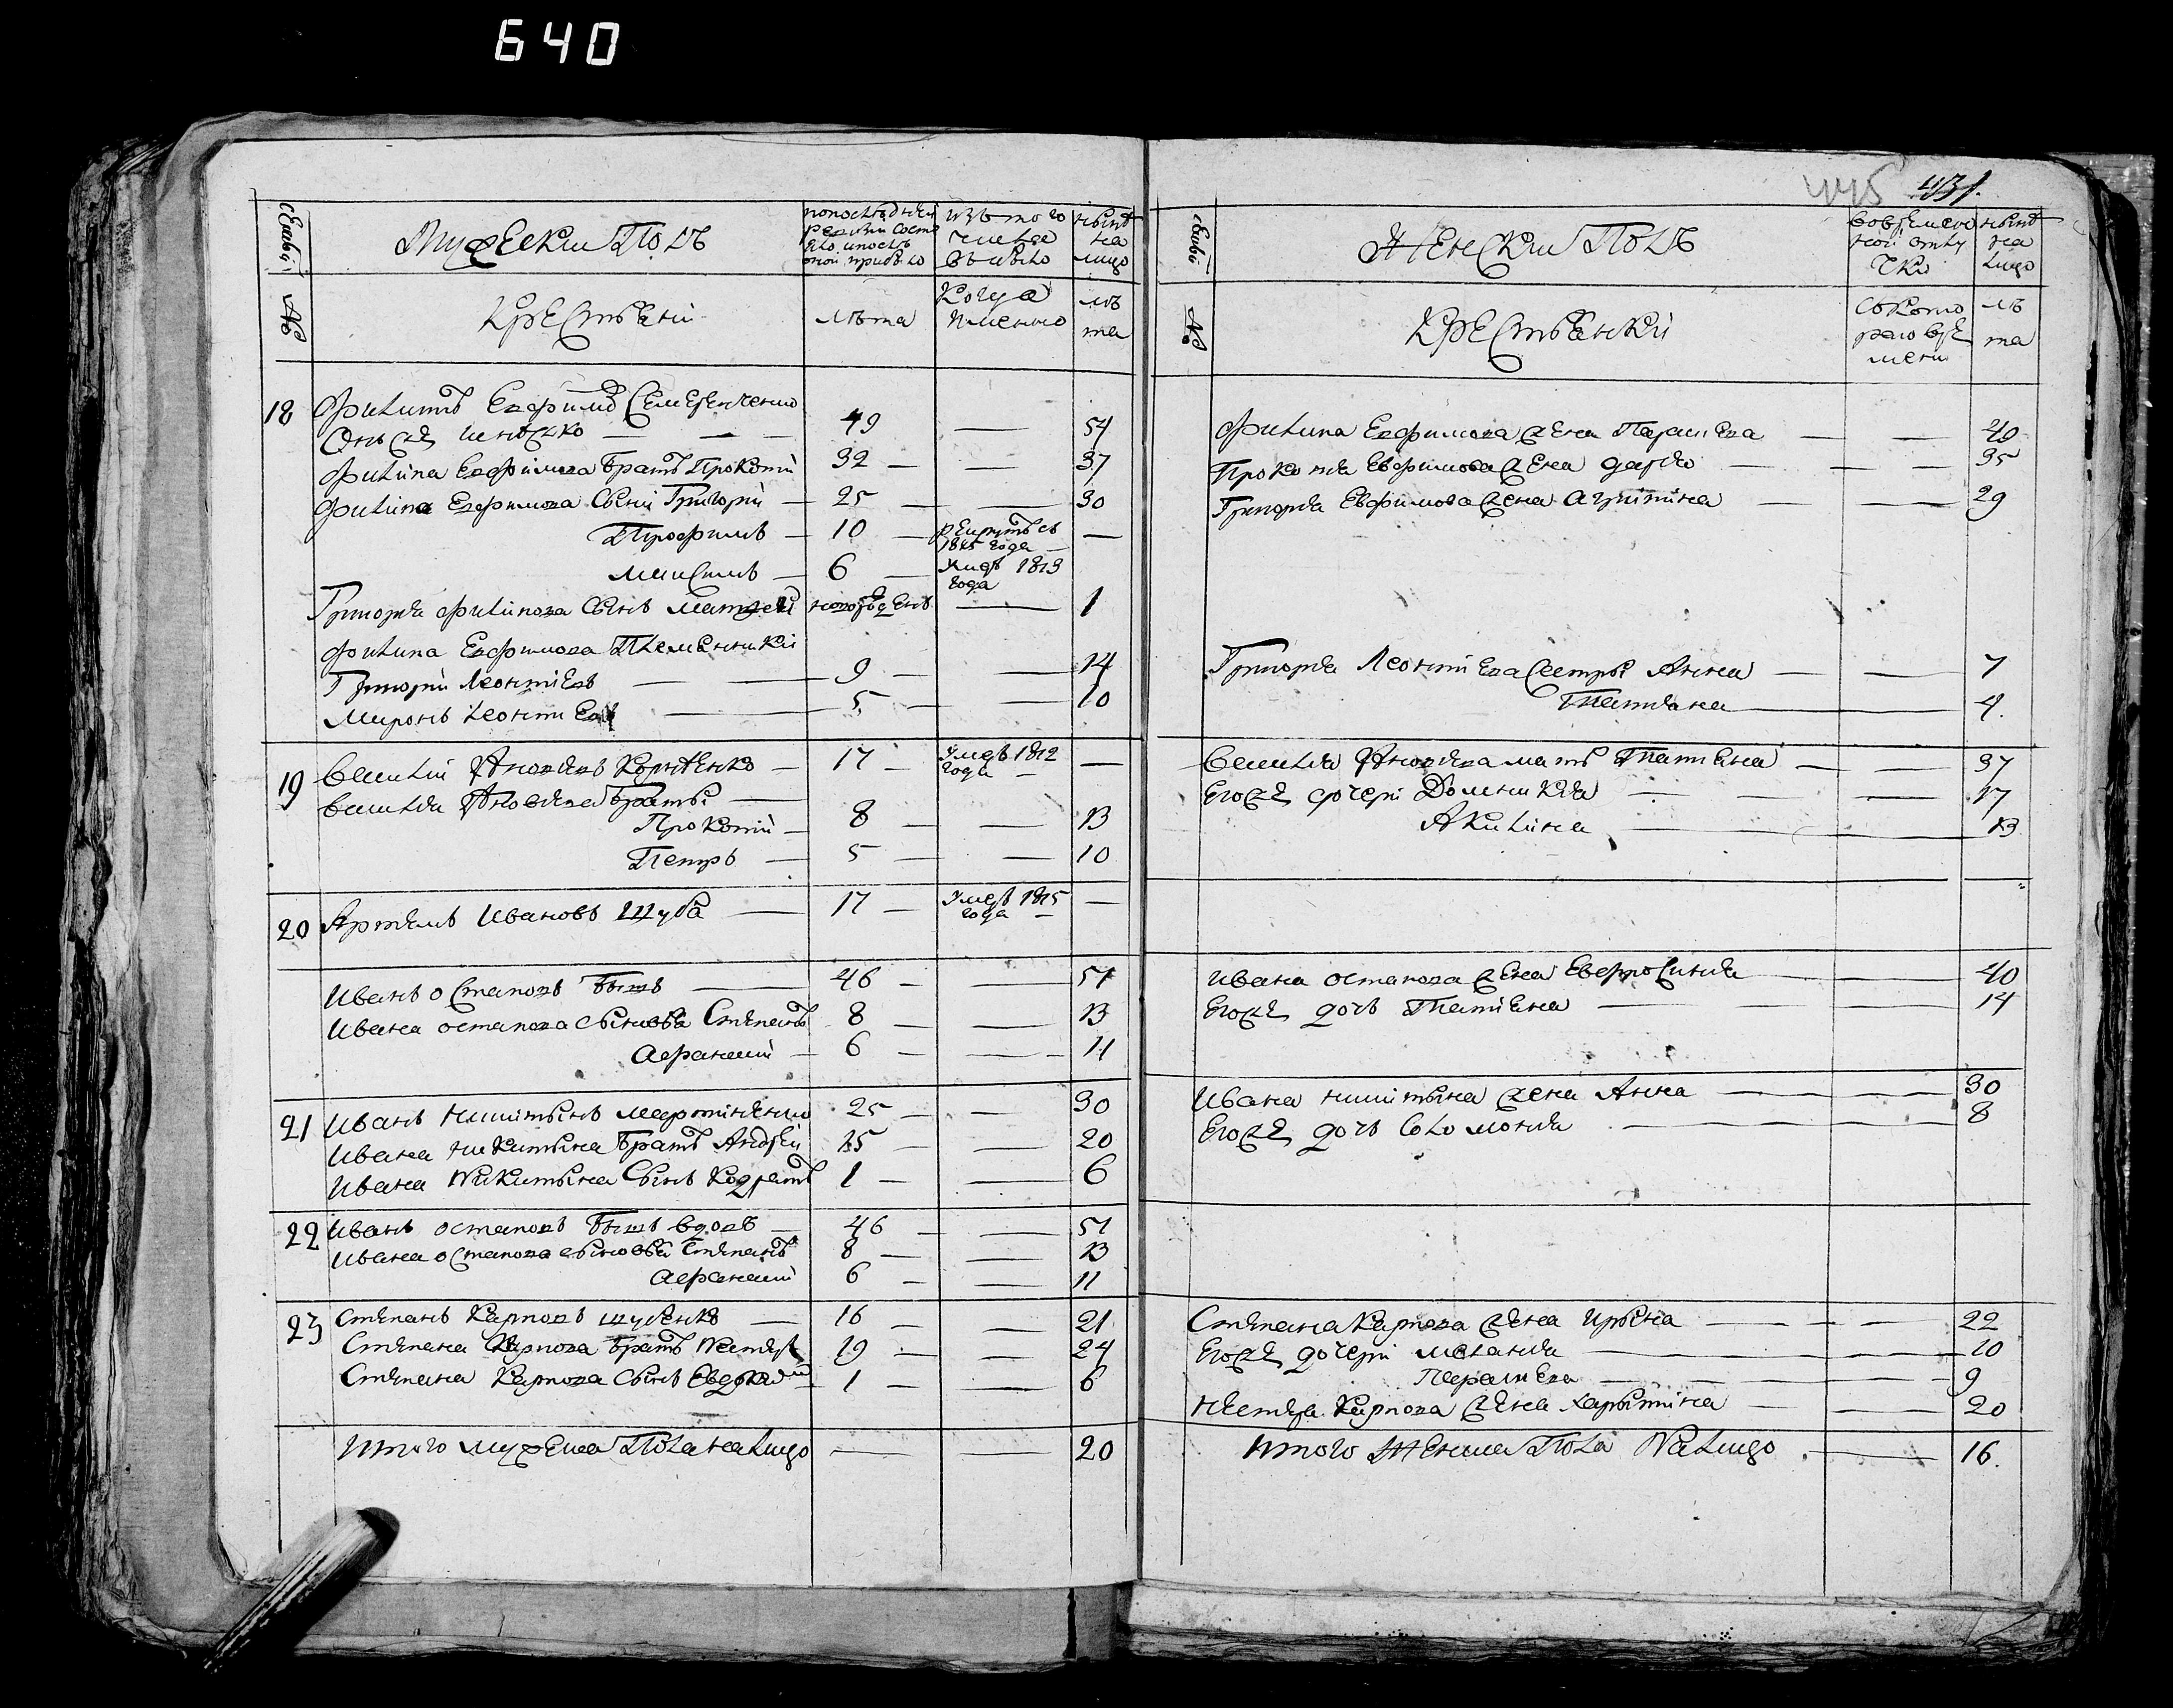 640
445 431.
семьи
Мужеский Полъ
попоследней ревизии состояло и после оной прибыло
изъ того числа выбыло
ныне на лицо
№
Крестьяни
лѣта
Когда именно
лѣта
18 Филипъ Евфимовъ Семеренченко
Онъ же Игнатенко — 49 — 54
Филипа Евфимова братъ Прокопий 32 — 37
Филипа Евфимова сыни Григорий — 25 — 30
Трофимъ — 10 — рекрутъ съ 1815 года —
Максимъ — 6 — умре 1813 года
Григория Филипова сынъ Матвей новорожденъ — 1
Филипа Евфимова Племянники
Григорий Леонтиевъ — 9 — 14
Миронъ Леонтиевъ — 5 — 10
19 Василий Яковлевъ — 17 — умре 1812 года —
Василия Яковлева братья —
Прокопий — 8 — 13
Петръ — 5 — 10
20 Артемъ Ивановъ Шуба — 17 — умре 1815 года —
Иванъ Остаповъ — 46 — 51
Ивана Остапова сыновья Степанъ 8 — 13
Афанасий — 6 — 11
21 Иванъ Никитинъ Мартиненко 25 — 30
Ивана Никитина братъ Андрей 15 — 20
Ивана Никитина сынъ Кодратъ 1 — 6
22 Иванъ Остаповъ вдовъ — 46 — 51
Ивана Остапова сыновья Степанъ 8 — 13
Афанасий 6 — 11
23 Степанъ Карповъ Шубенко — 16 — 21
Степана Карпова братъ Нестеръ 19 — 24
Степана Карпова сынъ Евдоким 1 — 6
Итого мужеска Пола налицо — — 20
семьи
Женский Полъ
во временной отлучке
ныне на лицо
№
Крестьянки
съ которого времени
лѣта
Филипа Евфимова жена Параскева — — 49
Прокопия Евфимова жена Дарья — — 35
Григория Евфимова жена Агрипина — — 29
Григория Леонтиева сестры Анна — — 7
Татияна — 4.
Василия Яковлева мать Татияна — — 37
Егоже дочери Домникия — — 17
Акилина — 13
Ивана Остапова жена Евфросиния — — 40
Егоже дочь Татияна — — 14
Ивана Никитина жена Анна — — 30
Егоже дочь Соломония — — 8
Степана Карпова жена Ирына — — 22
Егоже дочери Мелания — — 10
Параскева — — 9
Нестера Карпова жена Харытина — — 20
Итого Женска Пола Налицо — 16.